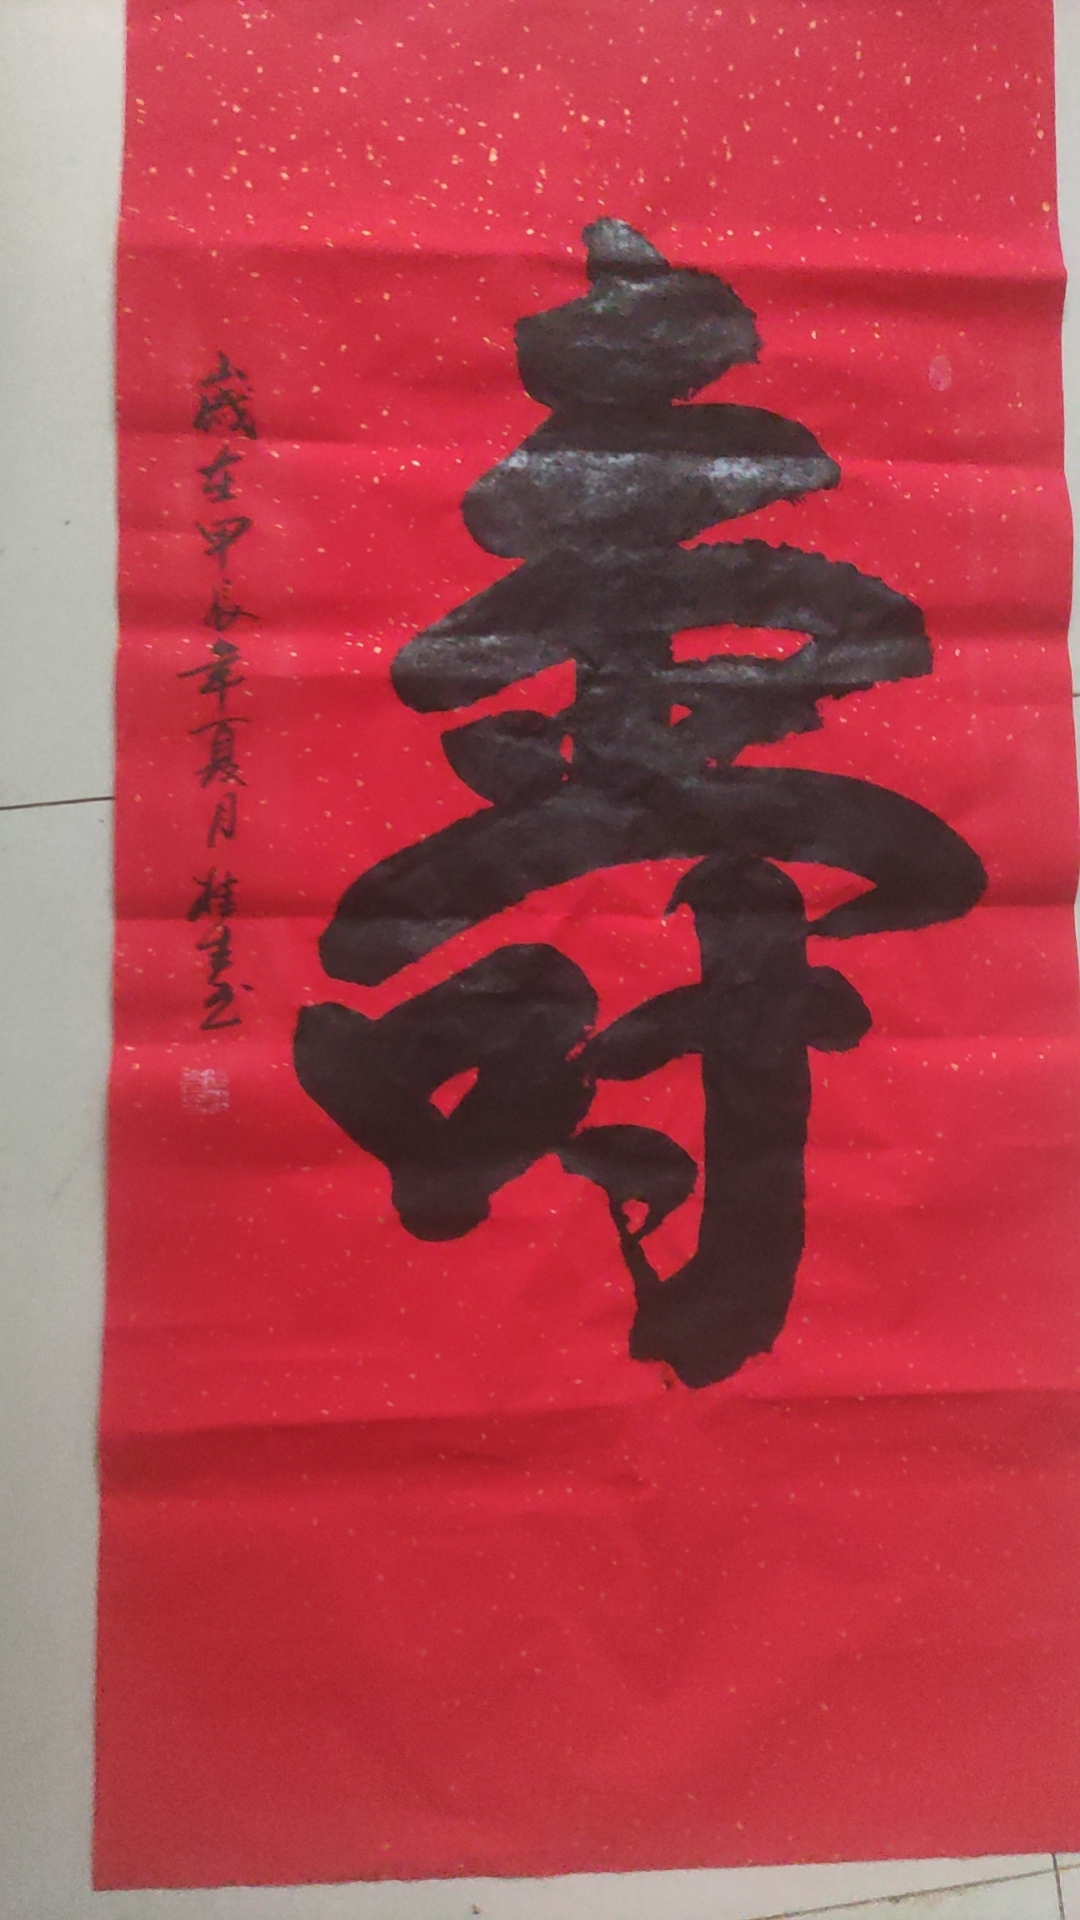 壽
歲在甲辰年夏月桂生书